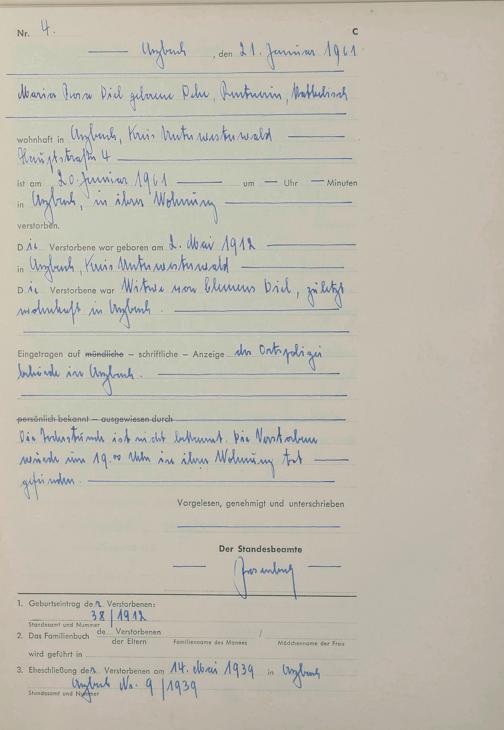 Nr. 4. C
Arzbach, den 21. Januar 1961
Maria Rosa Diel geborene, Rentnerin, katholisch
wohnhaft in Arzbach, Kreis Unterwesterwald
Hauptstraße 4
ist am 20. Januar 1961 um — Uhr — Minuten
in Arzbach, in ihrer Wohnung
verstorben.
Die Verstorbene war geboren am 2. Mai 1912
in Arzbach, Kreis Unterwesterwald
Die Verstorbene war Witwe von Clemens Diel, zuletzt
wohnhaft in Arzbach.
Eingetragen auf mündliche – schriftliche – Anzeige der Ortspolizei
behörde in Arzbach.
persönlich bekannt – ausgewiesen durch
Die Todesstunde ist nicht bekannt. Die Verstorbene
wurde um 19.00 Uhr in ihrer Wohnung tot
gefunden.
Vorgelesen, genehmigt und unterschrieben
Der Standesbeamte
1. Geburtseintrag der Verstorbenen:
38/1912
Standesamt und Nummer
2. Das Familienbuch de Verstorbenen /
der Eltern Familienname des Mannes Mädchenname der Frau
wird geführt in
3. Eheschließung der Verstorbenen am 14. Mai 1939 in Arzbach
Arzbach Nr. 9/1939
Standesamt und Nummer